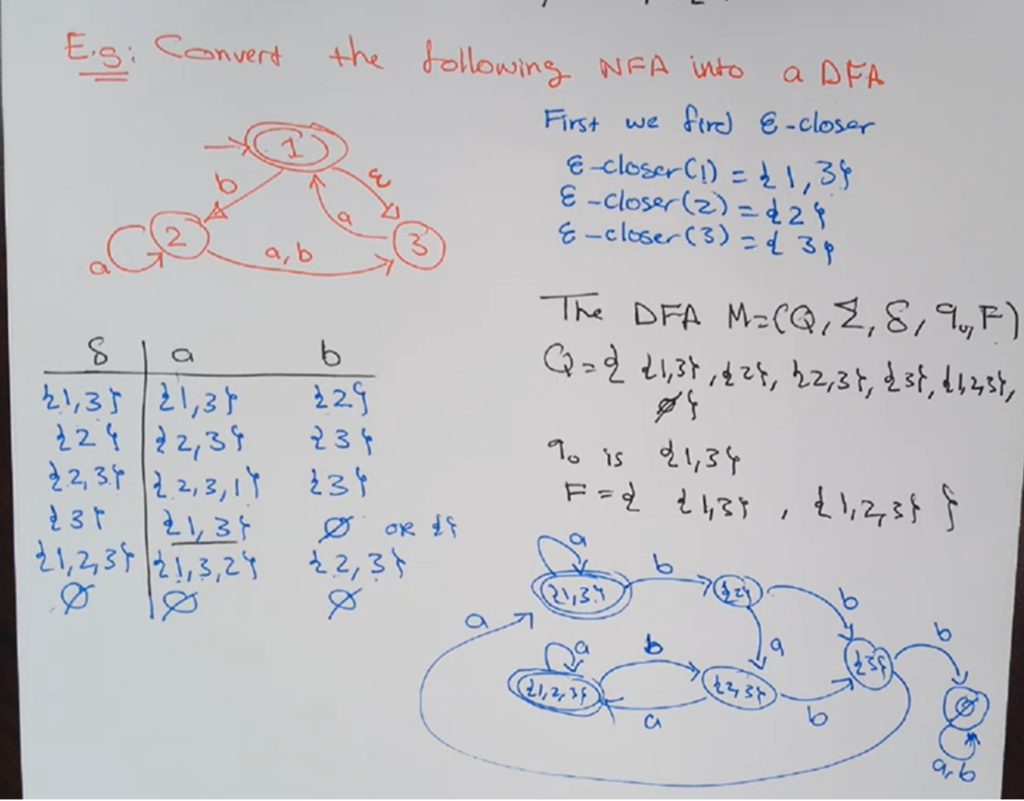 E.g: Convert the following NFA into a DFA
1
ε
b
a
2
3
a
a,b
First we find ε-closer
ε-closer(1) = {1,3}
ε-closer(2) = {2}
ε-closer(3) = {3}
δ a b
{1,3} {1,3} {2}
{2} {2,3} {3}
{2,3} {2,3,1} {3}
{3} {1,3} ∅ OR {}
{1,2,3} {1,3,2} {2,3}
∅ ∅ ∅
The DFA M=(Q,Σ,δ,q₀,F)
Q={ {1,3}, {2}, {2,3}, {3}, {1,2,3},
∅}
q₀ is {1,3}
F={ {1,3} , {1,2,3} }
a
b
{1,3}
{2}
b
a
b
a
b
a
{3}
{1,2,3}
{2,3}
a
b
∅
a,b